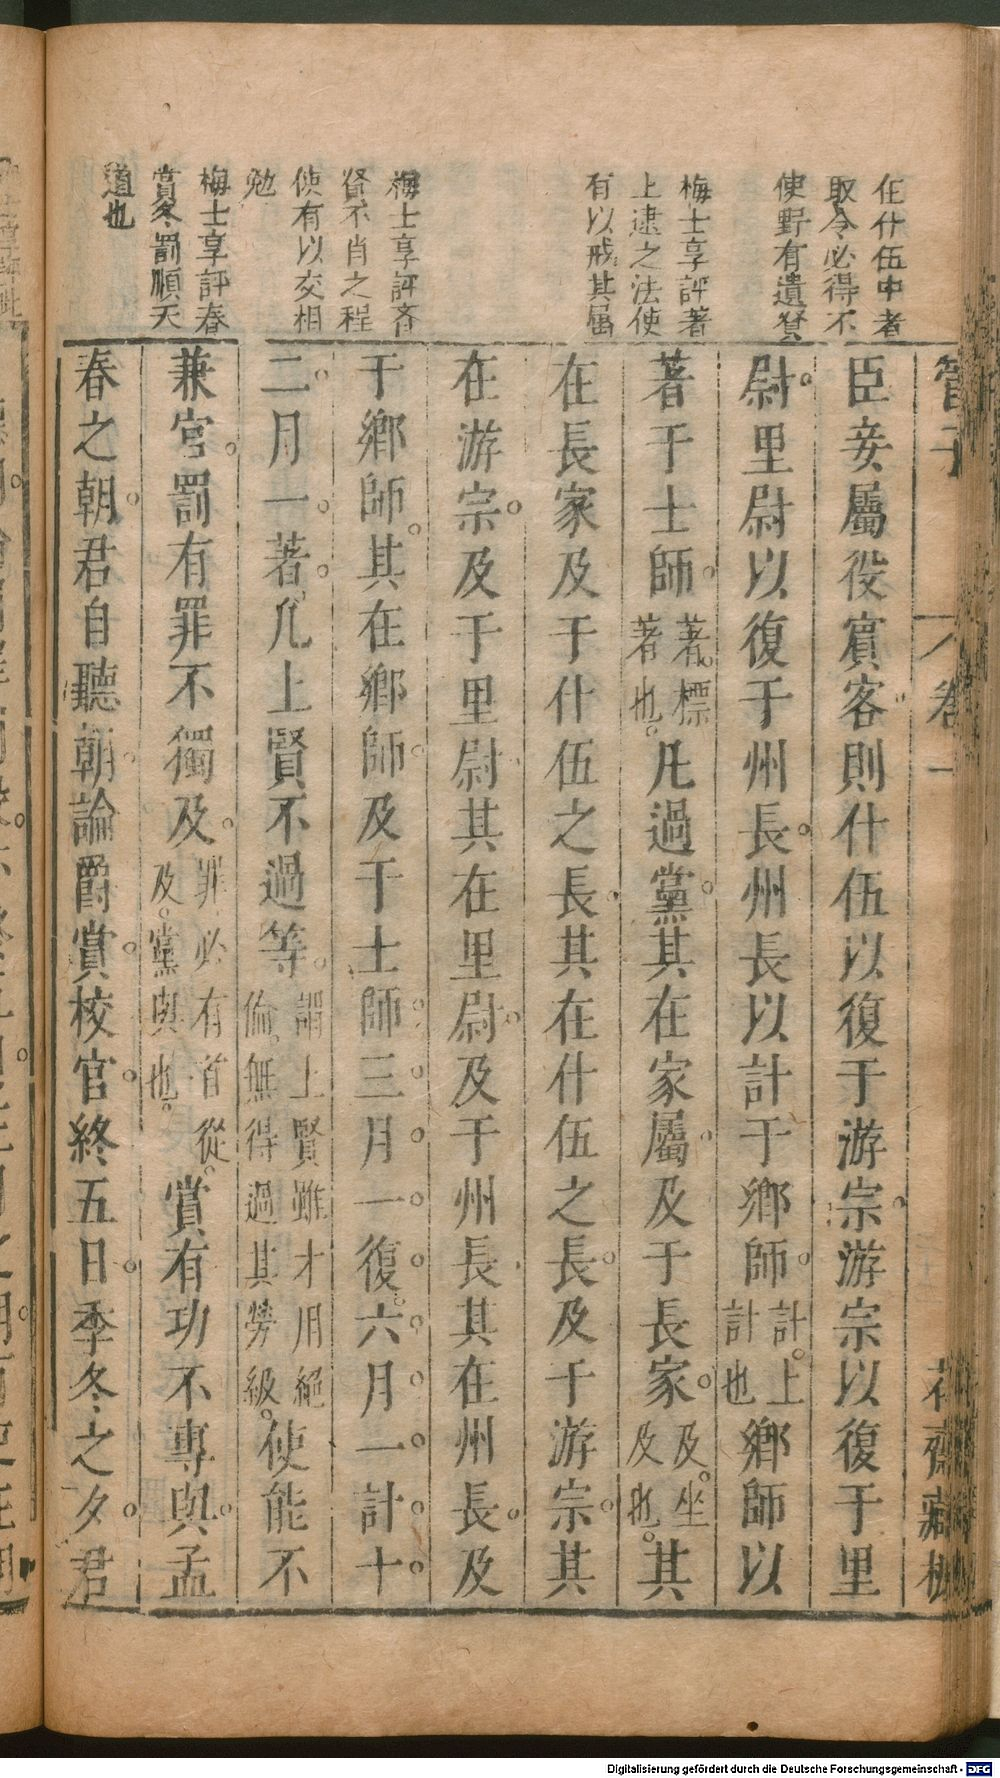 管子
卷一
花齋藏板
在什伍中者
取令必得不
使野有遺賢
梅士享評著
上逮之法使
有以戒其屬
梅士享評斉
賢不肖之程
使有以交相
勉
梅士享評春
賞冬罰順天
道也
臣妾屬役賓客則什伍以復于游宗游宗以復于里
尉里尉以復于州長州長以計于鄉師計上計也鄉師以
著于士師著標著也凡過黨其在家屬及于長家及坐及也其
在長家及于什伍之長其在什伍之長及于游宗其
在游宗及于里尉其在里尉及于州長其在州長及
于鄉師其在鄉師及于士師三月一復六月一計十
二月一著凡上賢不過等謂上賢雖才用絕倫無得過其勞級使能不
兼官罰有罪不獨及罪必有首從及黨與也賞有功不專與孟
春之朝君自聽朝論爵賞校官終五日季冬之夕君
Digitalisierung gefördert durch die Deutsche Forschungsgemeinschaft - DFG